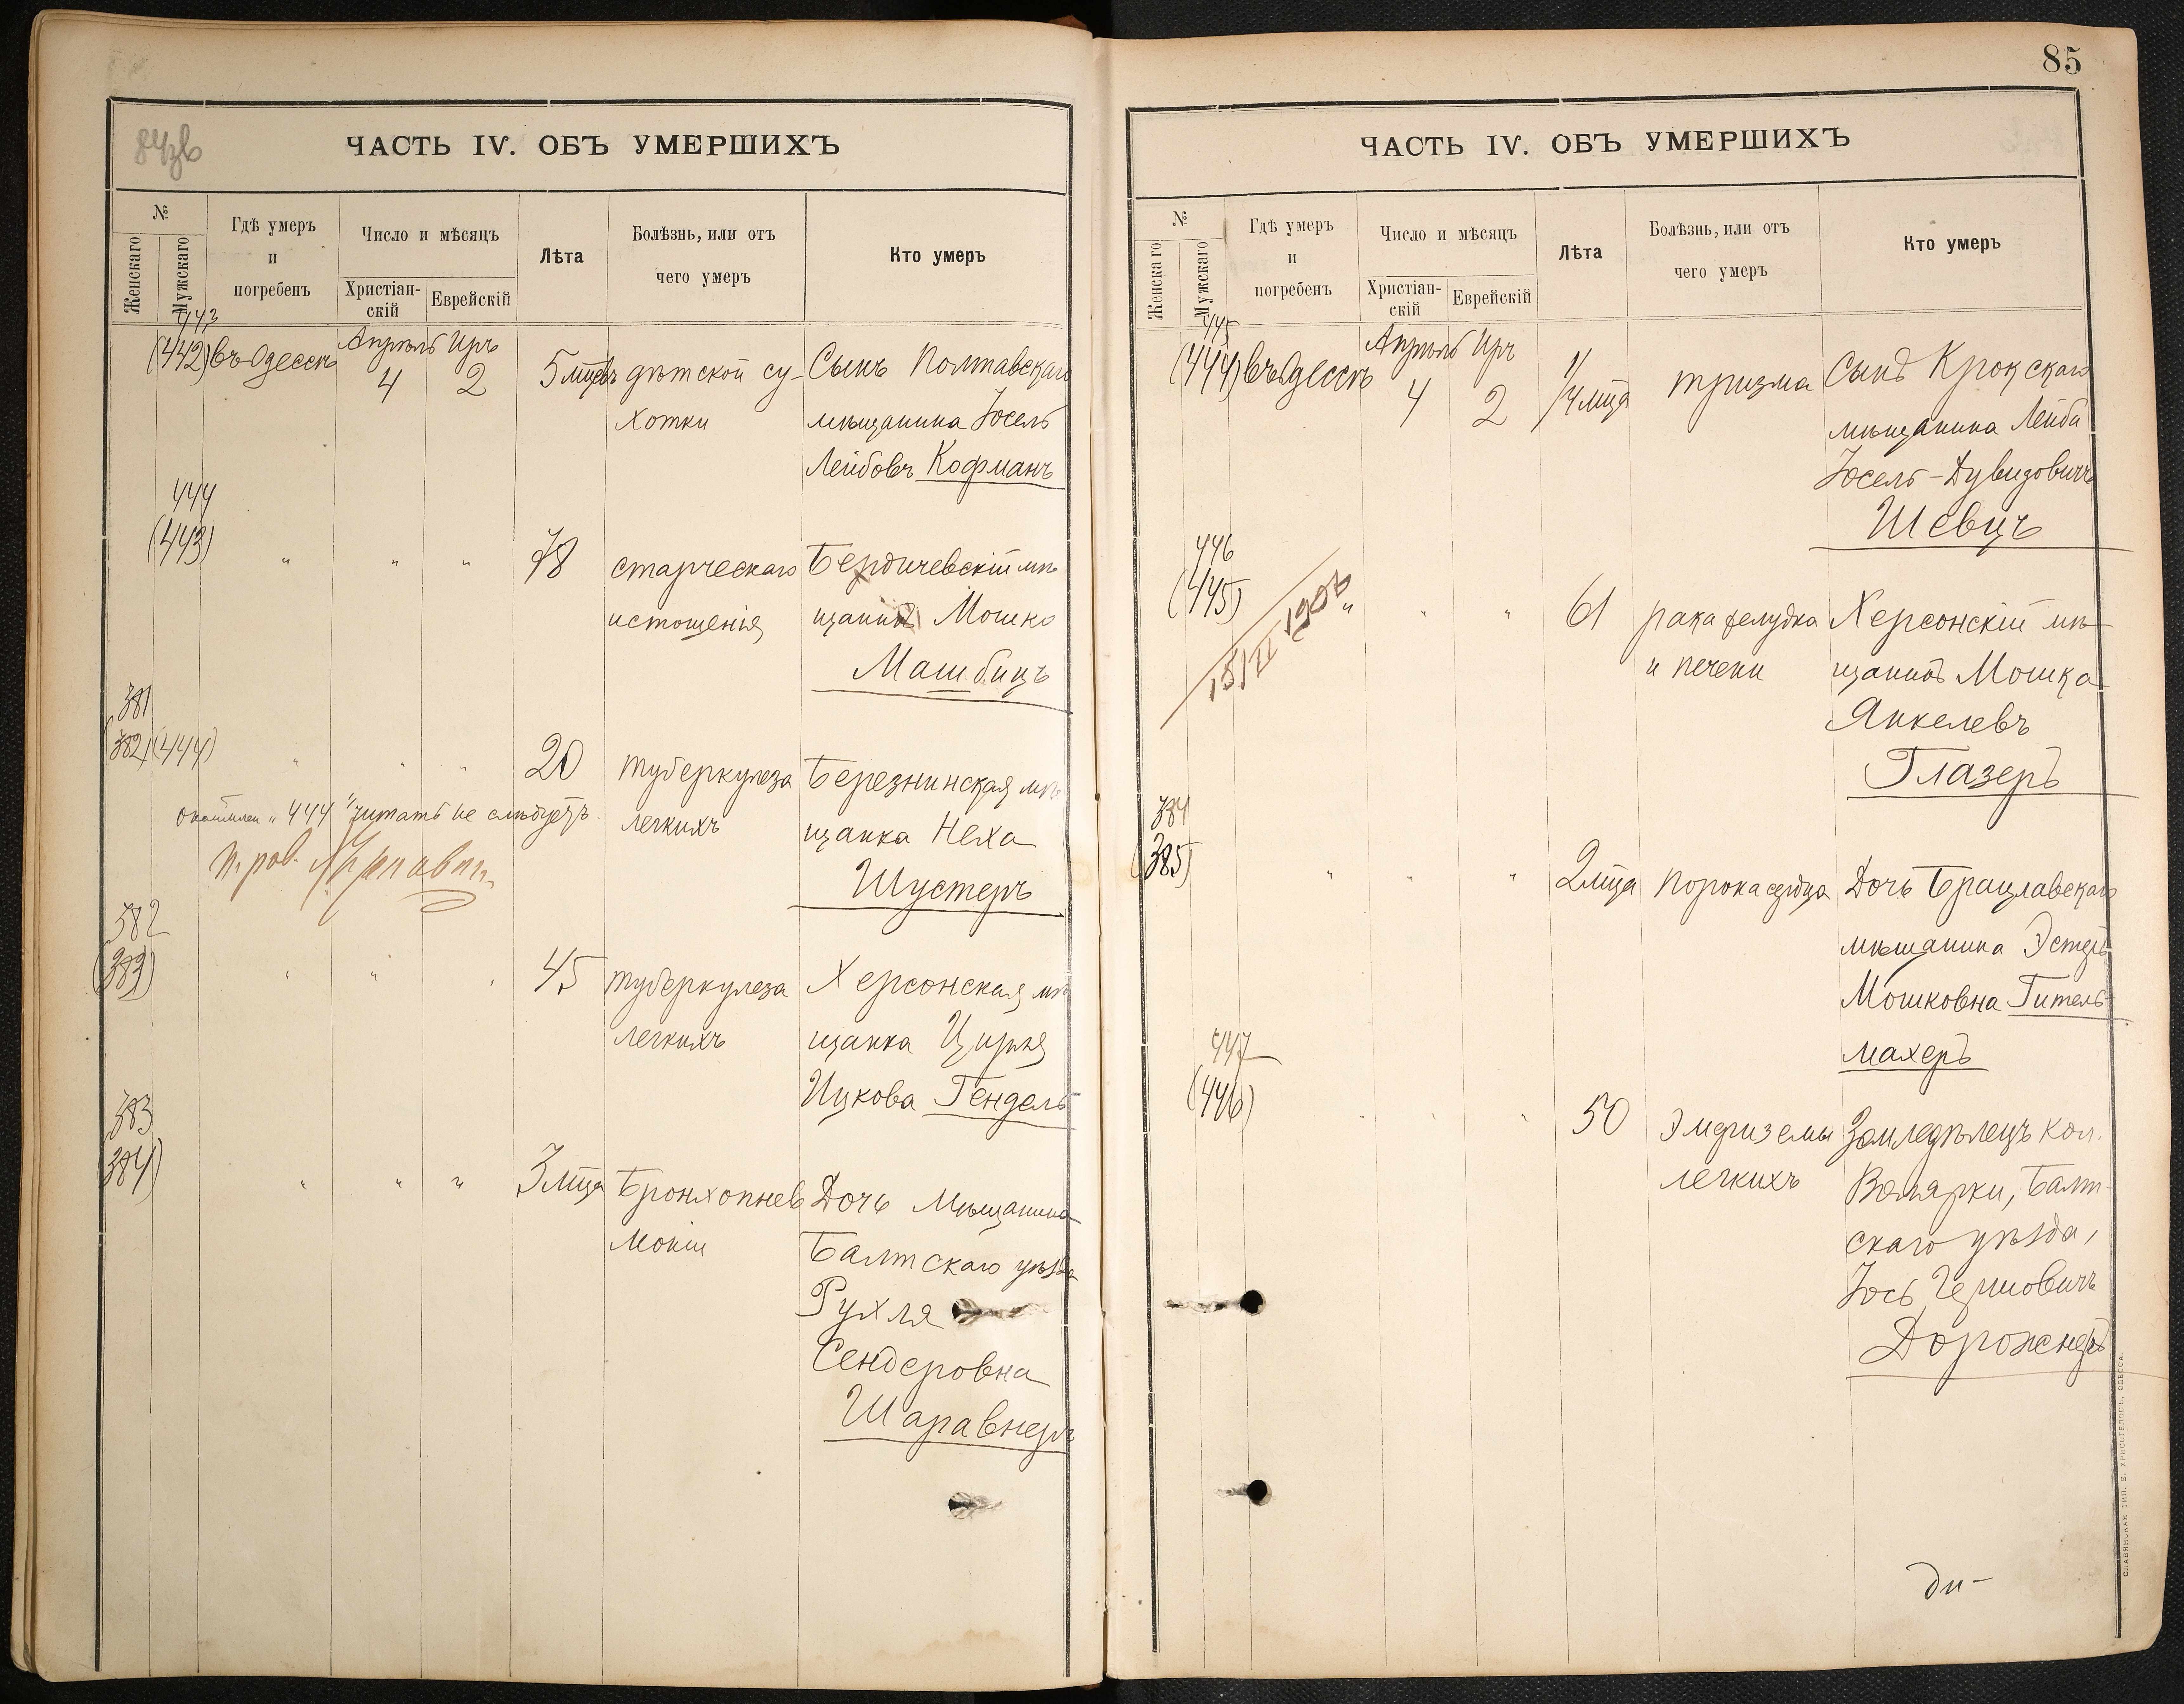 84зв
ЧАСТЬ IV. ОБЪ УМЕРШИХЪ
№
Женскаго
Мужскаго
Гдѣ умеръ
и
погребенъ
Число и мѣсяцъ
Христіан-
скій
Еврейскій
Лѣта
Болѣзнь, или отъ
чего умеръ
Кто умеръ
443
(442) въ Одессѣ Апрѣль 4 Иръ 2 5 мцевъ дѣтской су- Сынъ Полтавскаго
хотки мѣщанина Іосель
Лейбовъ Кофманъ
444
(443) " " " 78 старческаго Бердичевскій мѣ
истощенія щанинъ Мошко
Машбицъ
381
(382) (444) " " " 20 туберкулеза Березнинская мѣ
легкихъ щанка Неха
Шустеръ
"444" читать не слѣдуетъ
382
(383) " " " 45 туберкулеза Херсонская мѣ
легкихъ щанка Цирля
Ицкова Гендель
383
(384) " " " 3 мца Бронхопнев Дочь Мѣщанина
моніи Балтскаго уѣзда
Рухля
Сендеровна
Шаравнеръ
85
ЧАСТЬ IV. ОБЪ УМЕРШИХЪ
№
Женскаго
Мужскаго
Гдѣ умеръ
и
погребенъ
Число и мѣсяцъ
Христіан-
скій
Еврейскій
Лѣта
Болѣзнь, или отъ
чего умеръ
Кто умеръ
445
(444) въ Одессѣ Апрѣль 4 Иръ 2 1/4 мца тризма Сынъ Крокскаго
мѣщанина Лейба
Іосель-Дувидовичъ
Шевцъ
446
(445) " " " 61 рака желудка Херсонскій мѣ-
и печени щанинъ Мошка
Янкелевъ
Глазеръ
15/II 1906
384
(385) " " " 2 мца порока сердца Дочь Брацлавскаго
мѣщанина Эстеръ
Мошковна Гитель-
махеръ
447
(446) " " " 50 Эмфиземы Земледѣлецъ кол.
легкихъ Волярки, Балт-
скаго уѣзда,
Іось Гершовичъ
Дорожнеръ
СЛАВЯНСКАЯ ТИП. Е. ХРИСОГЕЛОСЪ, ОДЕССА